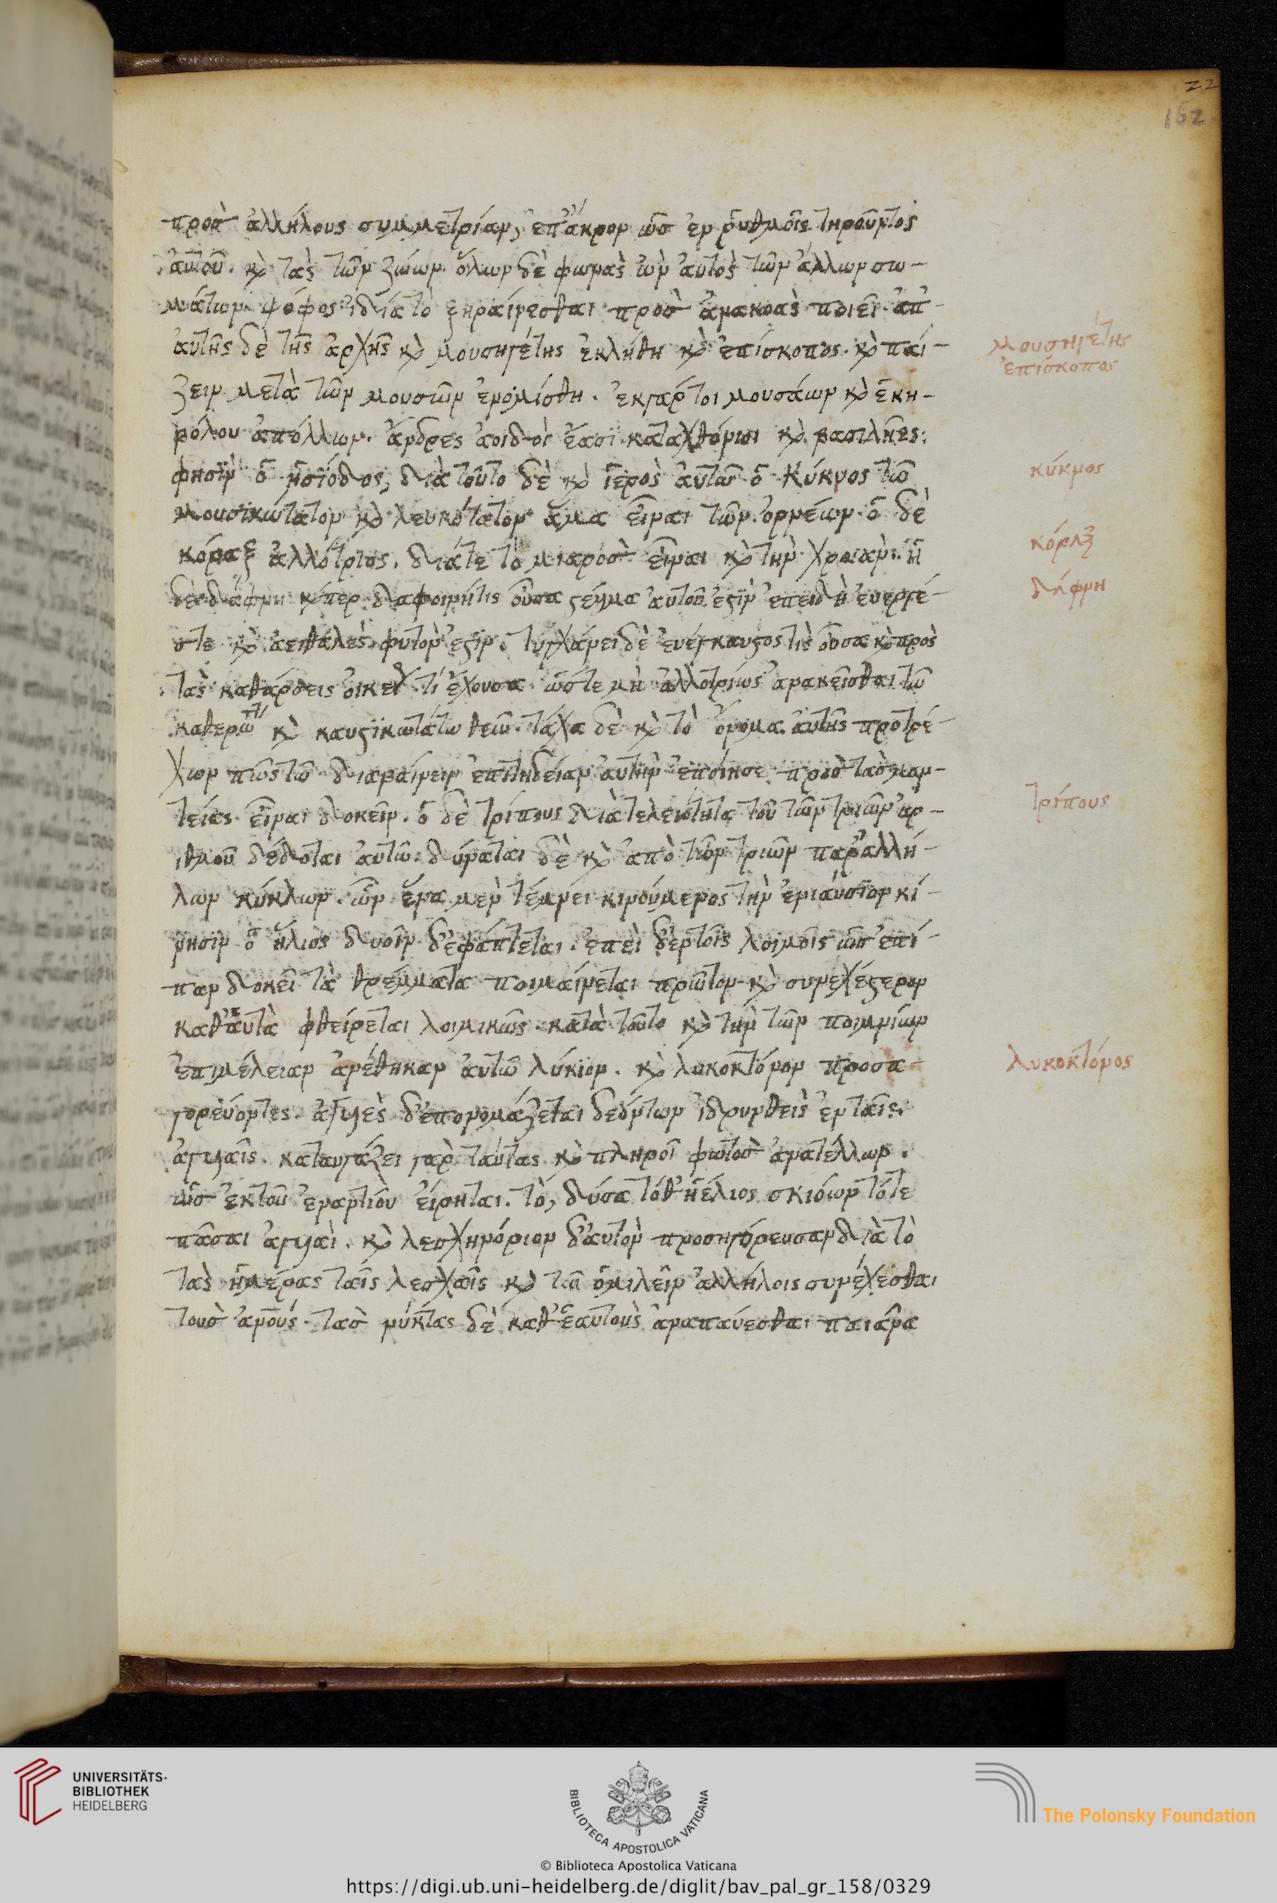 22
162
πρὸσ ἀλλήλους συμμετρίαν, ἐπ' ἄκρον ὡσ ἐν ῥυθμοῖς τηροῦντος
αὐτοῦ. κὸ τὰς τῶν ζώων. ὅλων δὲ φωνὰς ὢν αὐτὸς τῶν ἄλλων σω-
μάτων ψόφος· διὰ τὸ ξηραίνεσθαι πρὸσ ἀνακοὰς ποιεῖ. ἀπ'
αὐτῆς δὲ τῆς ἀρχῆς κὸ μουσηγέτης ἐκλήθη κὸ ἐπίσκοπος. κὸ παί-
ζειν μετὰ τῶν μουσῶν ἐνομίσθη. ἐκγάρτοι μουσάων κὸ ἑκη-
βόλου ἀπόλλων. ἄνδρες ἀοιδοὶ ἔασϊ καταχθόνιοι κὸ βασιλῆες.
φησϊν ὁ ἡσίοδος, διὰ τοῦτο δὲ κὸ ἱερὸς αὐτῶ ὁ κύκνος τῶ
μουσϊκώτατον κὸ λευκότατον ἅμα εἶναι τῶν ὀρνέων. ὁ δὲ
κόραξ ἀλλότριος. διάτε τὸ μιαρὸσ εἶναι κὸ τὴν χροιάν. ἡ
δὲ δάφνη κάπερ δαφοινήτις οὖσα στέμμα αὐτοῦ ἐστϊν ἐπειδὴ ἐνερνέ-
στε κὸ ἀειθαλὲς φυτὸν ἐστϊν. τυγχάνει δὲ εὐέγκαυστος τὶς οὖσα κὸ πρὸς
τὰς καθάρσεις οἰκεῖ τί ἔχουσα ὥστε μὴ ἀλλοτρίως ἀνακεῖσθαι τῶ
καθερωτ κὸ καυστϊκωτάτω θεῶ. τάχα δὲ κὸ τὸ ὄνομα αὐτῆς προτρέ-
χων πῶς τῶ διαφαίνειν ἐπιτηδείαν αὐτὴν ἐποίησε πρὸσ τὰσ μαν-
τείας εἶναι δοκεῖν. ὁ δὲ τρίπους διὰ τελειότητα τοῦ τῶν τριῶν ἀρ-
ιθμοῦ δέδοται αὐτῶ. δύναται δὲ κὸ ἀπὸ τῶν τριῶν παραλλή-
λων κύκλων. ὧν ἕνα μὲν τέμνει κινούμενος τὴν ἐνιαύσϊον κί-
νησϊν ὁ ἥλιος δυοῖν δ' ἐφάπτεται. ἐπεὶ δ' ἐν τοῖς λοιμοῖς ὡσ ἐπί-
παν δοκεῖ τὰ θρέμματα ποιμαίνεται πρῶτον κὸ συνεχέστερον
καθ' αὑτὰ φθείρεται λοιμικῶς. κατὰ τοῦτο κὸ τὴν τῶν ποιμνίων
ἐπιμέλειαν ἀνέθηκαν αὐτῶ λύκιον. κὸ λυκοκτόνον προσα
γορεύοντες. ἀγυιεὺς δ' ἐπονομάζεται δεόντων ἱδρυνθεὶς ἐν ταῖς
ἀγυιαῖς. καταυγάζει γὰρ ταύτας κὸ πληροῖ φωτὸσ ἀνατέλλων.
ὡσ ἐκ τοῦ ἐναντίου εἴρηται. τὸ, δύσατό θ' ἠέλιος σκιόων τότε
πᾶσαι ἀγυιαί. κὸ λεσχηνόριον δ' αὐτὸν προσηγόρευσαν διὰ τὸ
τὰς ἡμέρας ταῖς λεσχαῖς κὸ τῶ ὁμιλεῖν ἀλλήλοις συνέχεσθαι
τοὺσ ἀνούς. τὰσ νύκτας δὲ καθ' ἑαυτοὺς ἀναπαύεσθαι παιᾶνα
μουσηγέτης
ἐπίσκοπος
κύκνος
κόραξ
δάφνη
τρίπους
λυκοκτόνος
UNIVERSITÄTS-
BIBLIOTHEK
HEIDELBERG
BIBLIOTECA APOSTOLICA VATICANA
© Biblioteca Apostolica Vaticana
The Polonsky Foundation
https://digi.ub.uni-heidelberg.de/diglit/bav_pal_gr_158/0329